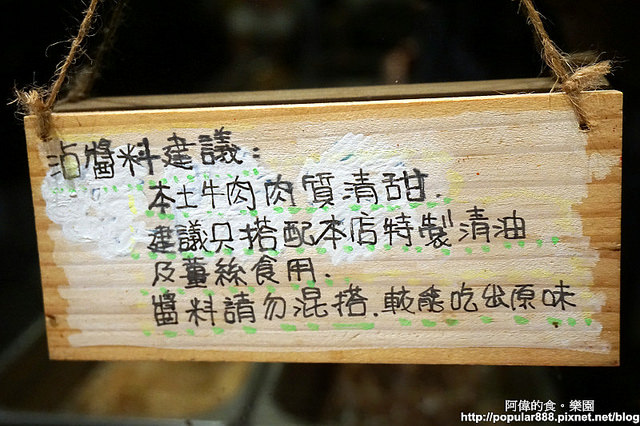 沾醬料建議：
本土牛肉肉質清甜.
建議只搭配本店特製清油
及薑絲食用.
醬料請勿混搭.較能吃出原味
阿偉的食。樂園
http://popular888.pixnet.net/blog